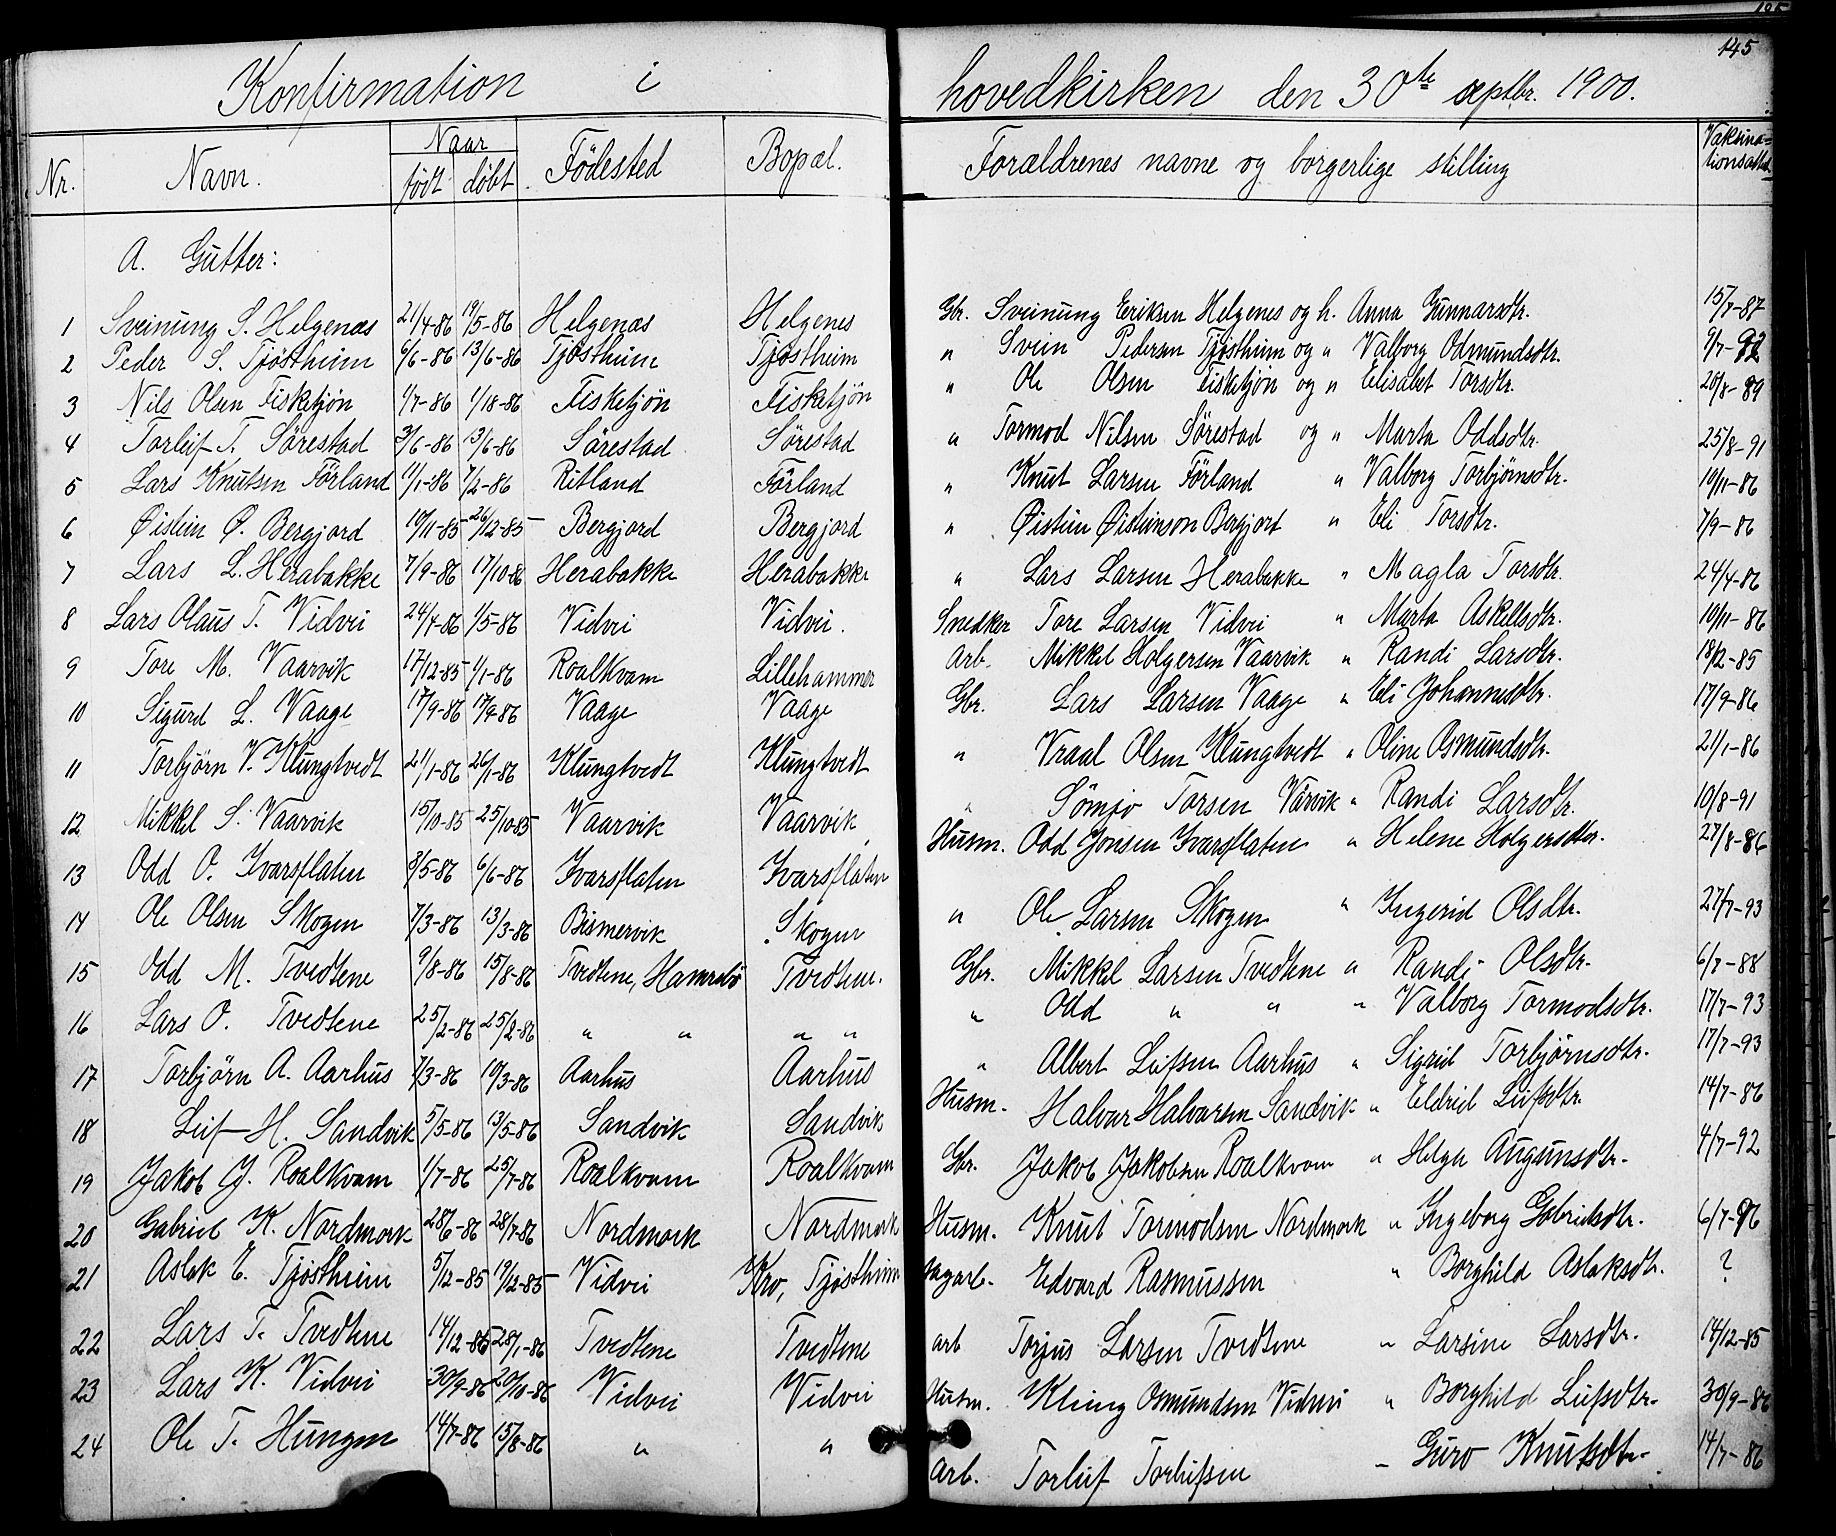 145
Konfirmation i hovedkirken den 30te septbr. 1900.
Nr. Navn. Naar født døbt. Födested Bopæl. Forældrenes navne og borgerlige stilling Vaksinationsattest
A. Gutter:
1 Sveinung S. Helgenæs 21/4-86 19/5-86 Helgenæs Helgenes Gbr. Sveinung Eriksen Helgenes og h. Anna Gunnarsdtr. 15/7-87
2 Peder S. Tjöstheim 6/6-86 13/6-86 Tjöstheim Tjöstheim " Svein Pedersen Tjöstheim og " Valborg Odmundsdtr.
3 Nils Olsen Fisketjön 1/7-86 1/18-86 Fisketjön Fisketjön " Ole Olsen Fisketjön og " Elisabet Torsdtr. 26/8-89
4 Torleif T. Sörestad 3/6-86 13/6-86 Sörestad Sörestad " Tormod Nilsen Sörestad og " Marta Oddsdtr. 25/8-91
5 Lars Knutsen Förland 11/1-86 7/2-86 Ritland Förland " Knut Larsen Förland " Valborg Torbjörnsdtr. 19/11-86
6 Øistein Ø. Bergjord 19/11-85 26/12-85 Bergjord Bergjord " Øistein Øisteinson Bergjord " Eli Torsdtr. 7/9-86
7 Lars L. Herabakke 7/9-86 17/10-86 Herabakke Herabakke " Lars Larsen Herabakke " Magla Torsdtr. 24/4-86
8 Lars Olaus T. Vidvei 24/4-86 1/5-86 Vidvei Vidvei. Snedker Tore Larsen Vidvei " Marta Askellsdtr. 19/11-86
9 Tore M. Vaarvik 17/12-85 1/1-86 Roalkvam Lillehammer Arb. Mikkel Holgersen Vaarvik " Randi Larsdtr. 18/2-85
10 Sigurd L. Vaage 17/9-86 17/9-86 Vaage Vaage Gbr. Lars Larsen Vaage " Eli Johannesdtr. 17/9-86
11 Torbjörn V. Klungtvedt 21/1-86 26/1-86 Klungtvedt Klungtvedt " Vraal Olsen Klungtvedt " Oline Osmundsdtr. 21/1-86
12 Mikkel S. Vaarvik 15/10-85 25/10-85 Vaarvik Vaarvik " Sömjo Torsen Varvik " Randi Larsdtr. 10/8-91
13 Odd O. Ivarsflaten 8/5-86 6/6-86 Ivarsflaten Ivarsflaten Husm. Odd Jonsen Ivarsflaten " Helene Holgersdtr. 27/8-86
14 Ole Olsen Skogen 7/3-86 13/3-86 Bismervik Skogen " Ole Larsen Skogen " Ingerid Olsdtr. 27/7-93
15 Odd M. Tvedtene 9/8-86 15/8-86 Tvedtene, Hamrabö Tvedtene. Gbr. Mikkel Larsen Tvedtene " Randi Olsdtr. 6/7-88
16 Lars O. Tvedtene 25/2-86 25/2-86 " " " " " Odd " " " Valborg Tormodsdtr. 17/7-93
17 Torbjörn A. Aarhus 7/3-86 10/3-86 Aarhus Aarhus " Albert Leifsen Aarhus " Sigrid Torbjörnsdtr. 17/7-93
18 Leif H. Sandvik 5/5-86 13/5-86 Sandvik Sandvik Husm. Halvar Halvarsen Sandvik " Eldrid Leifsdtr. 14/7-86
19 Jakob J. Roalkvam 1/7-86 25/7-86 Roalkvam Roalkvam Gbr. Jakob Jakobsen Roalkvam " Helga Augunsdtr. 4/7-92
20 Gabriel K. Nordmork 28/6-86 28/7-86 Nordmork Nordmork Husm. Knut Tormodsen Nordmork " Ingeborg Gabrielsdtr. 6/7-96
21 Aslak E. Tjöstheim 5/12-85 19/12-85 Vidvei Kro, Tjöstheim Edvard Rasmussen " Borghild Aslaksdtr. ?
22 Lars T. Tvedtene 14/12-85 28/1-86 Tvedtene Tvedtene arb Torjus Larsen Tvedtene " Larsine Larsdtr. 14/12-85
23 Lars K. Vidvei 30/9-86 20/10-86 Vidvei Vidvei Husm. Kleng Osmundsen Vidvei " Borghild Leifsdtr. 30/9-86
24 Ole T. Hungen 14/7-86 15/8-86 " " Arb. Torleif Torleifsen " Guro Knutsdtr. 14/7-86